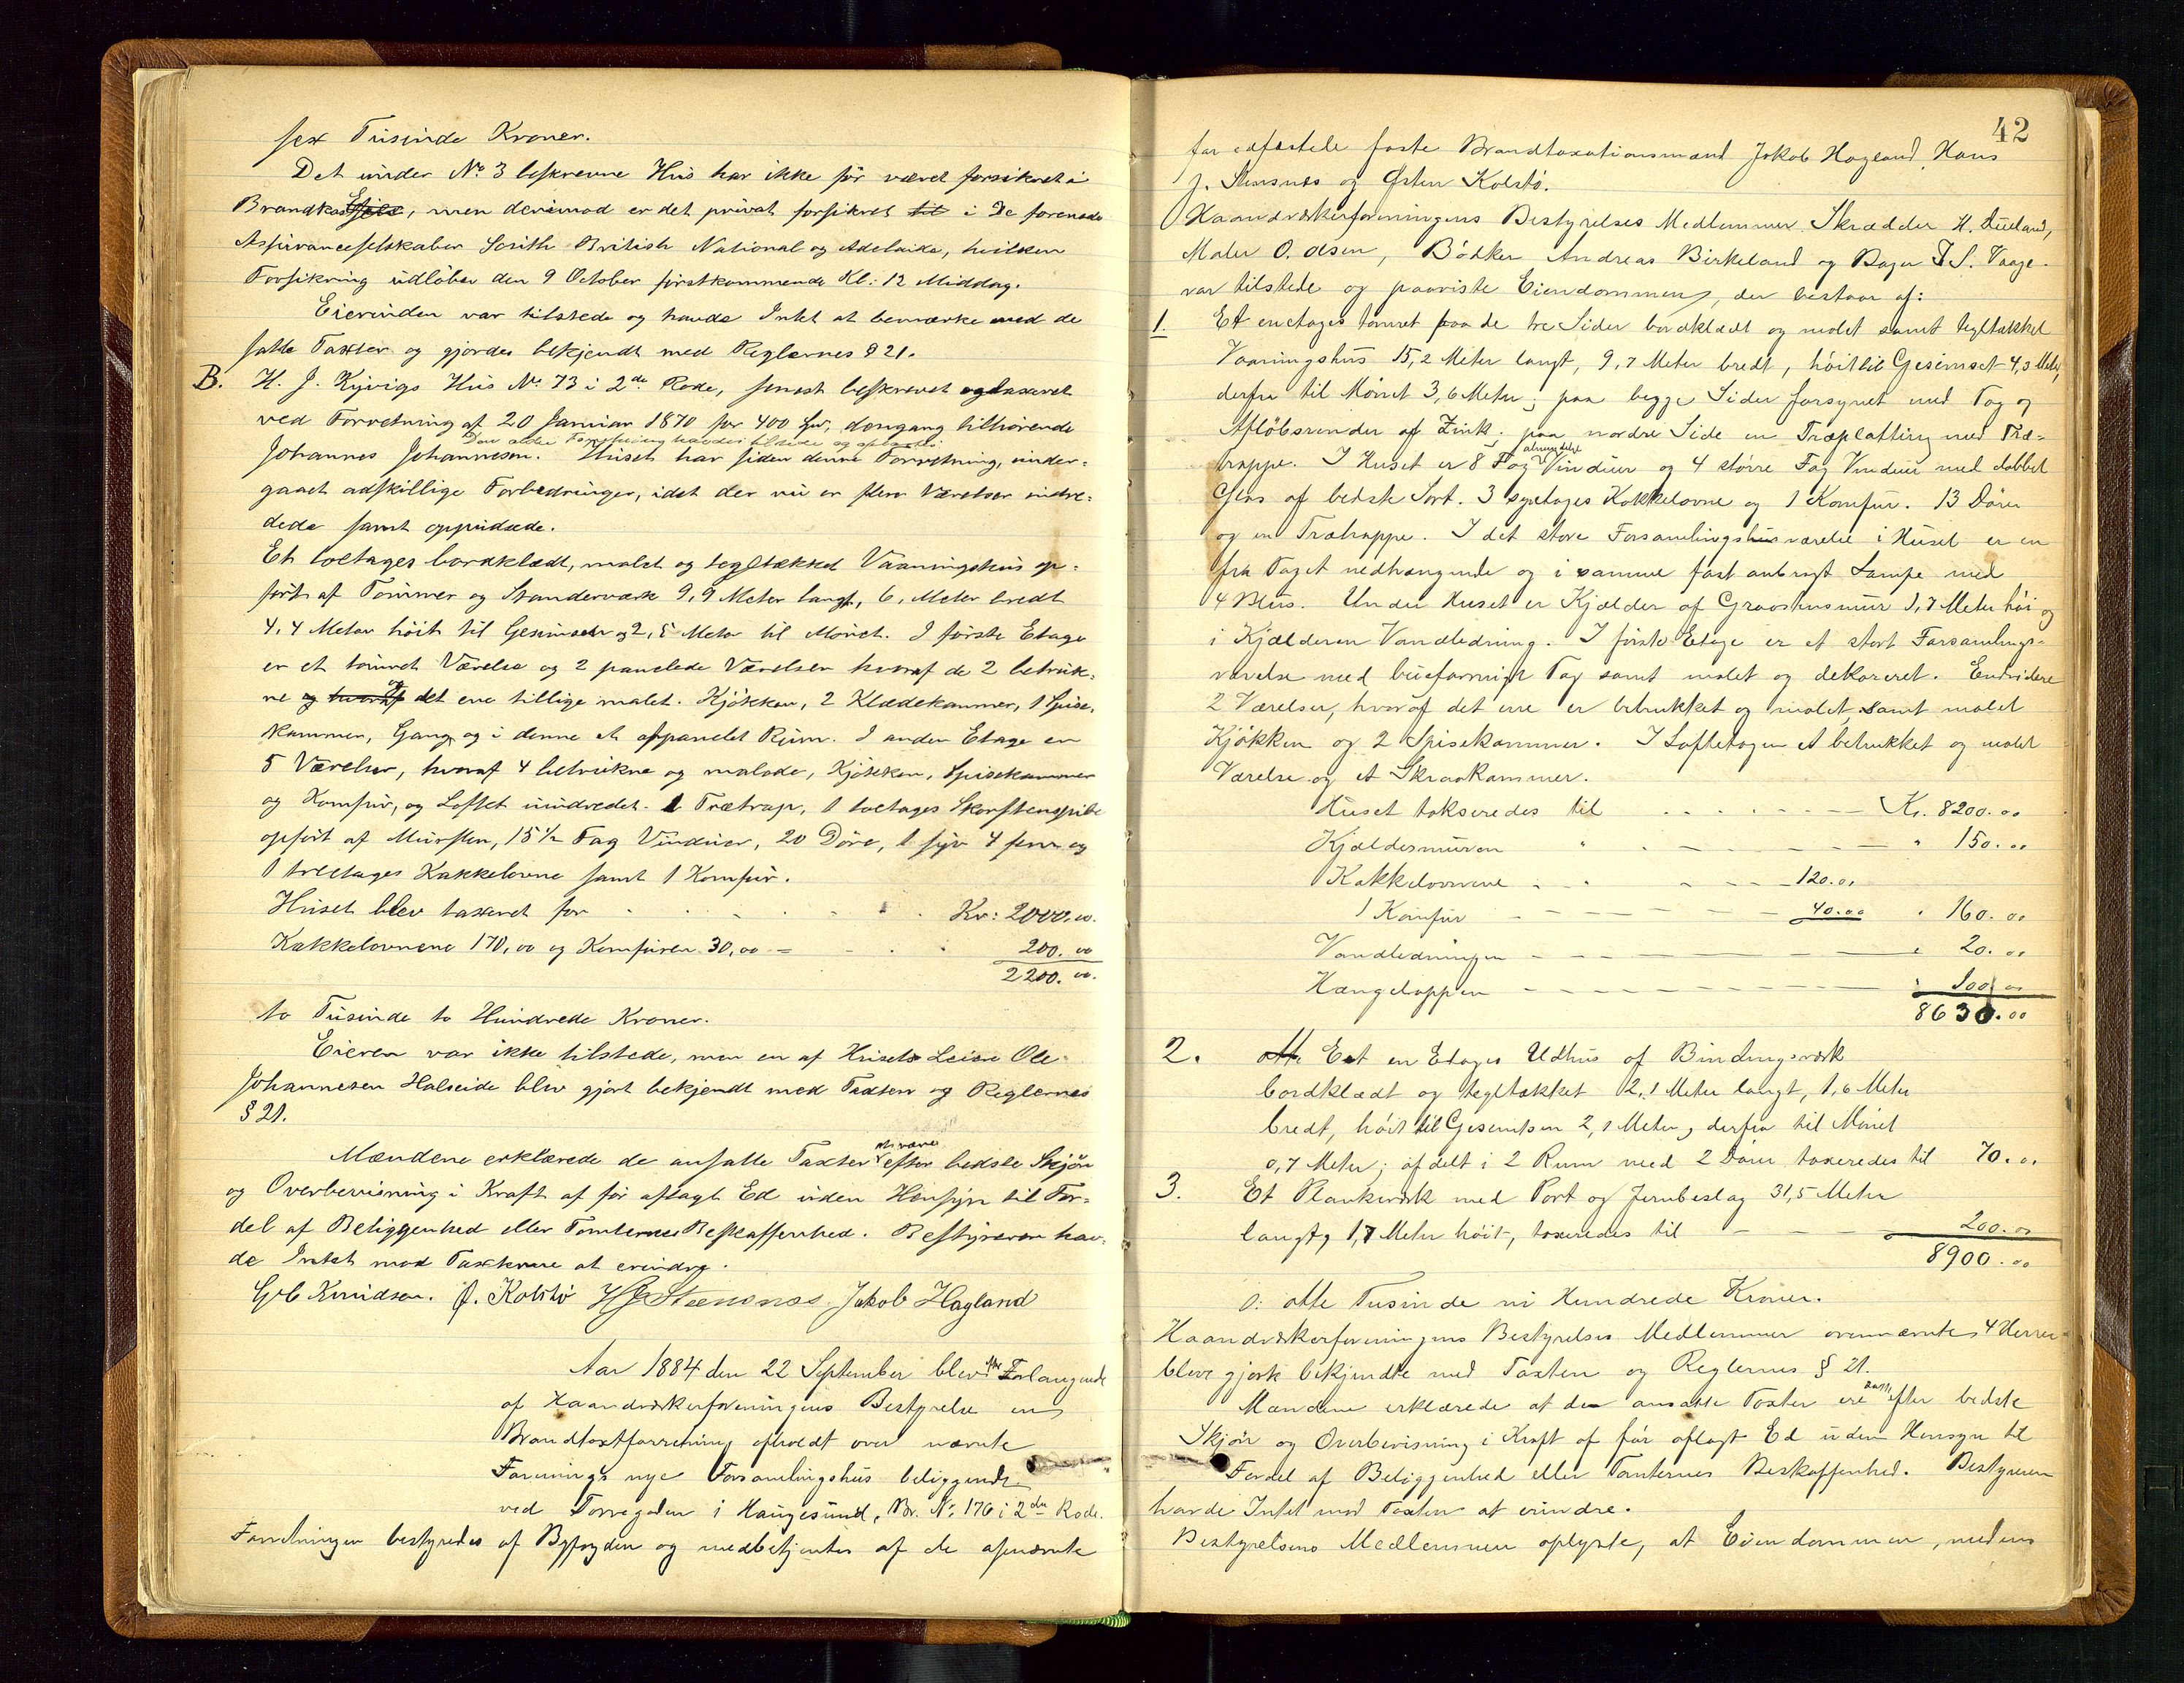 sex Tusinde Kroner.
Det under No 3 beskrevne Hus har ikke før været forsikret i
Brandkassen, men derimod er det privat forsikret til i De forenede
Assuranceselskaber South British National og Adelaide, hvilken
Forsikring udløber den 9 October førstkommende Kl: 12 Middag.
Eierinden var tilstede og havde Intet at bemærke med de
satte Taxter og gjordes bekjendt med Reglernes § 21.
B. H. J. Kyvigs Hus No 73 i 2de Rode, senest beskrevet og taxeret
ved Forretning af 20 Januar 1870 for 400 Spd, dengang tilhørende
Johannes Johannesen. Huset har siden denne Forretning, under-
gaaet adskillige Forbedringer, idet der nu er flere Værelser indre-
dede samt oppudsede.
Et toetages bordklædt, malet og tegltækket Vaaningshus op-
ført af Tømmer og Standerværk 9,9 Meter langt, 6, Meter bredt
4,4 Meter høit til Gesimsen og 2,5 Meter til Mønet. I første Etage
er et tømret Værelse og 2 panelede Værelser hvoraf de 2 betruk-
ne og hvoraf det ene tillige malet. Kjøkken, 2 Klædekammer, 1 Spise-
kammer, Gang og i denne et afpanelet Rum. I anden Etage er
5 Værelser, hvoraf 4 betrukne og malede, Kjøkken, Spisekammer
og Komfur, og Loftet uindredet. 1 Trætrap, 1 toetages Skorstenspibe
opført af Mursten, 15½ Fag Vinduer, 20 Døre, 1 syv 4 fem og
1 treetages Kakkelovne samt 1 Komfur.
Huset blev taxeret for Kr: 2000.00.
Kakkelovnene 170,00 og Komfuren 30,00 = 200.00
2200.00.
to Tusinde to Hundrede Kroner.
Eieren var ikke tilstede, men en af Husets Leiere Ole
Johannesen Halseide blev gjort bekjendt med Taxten og Reglernes
§ 21.
Mændene erklærede de ansatte Taxter at være efter bedste Skjøn
og Overbevisning i Kraft af før aflagt Ed uden Hensyn til For-
del af Beliggenhed eller Tomternes Beskaffenhed. Bestyreren hav-
de Intet mod Taxterne at erindre.
Knudsen. Ø. Kolstø H J Stensnæs. Jakob Hagland
Aar 1884 den 22 September blev efter Forlangende
af Haandværkerforeningens Bestyrelse en
Brandtaxtforretning afholdt over nævnte
Forenings nye Forsamlingshus beliggende
ved Torvegaden i Haugesund, Br. No 176 i 2den Rode.
Forretningen bestyredes af Byfogden og medbetjentes af de afnævnte
42
før edfæstede faste Brandtaxationsmænd Jakob Hagland Hans
J. Stensnæs og Østen Kolstø.
Haandværkerforeningens Bestyrelses Medlemmer Skrædder H. Dueland,
Maler O. Olsen, Bødker Andreas Birkeland og Bager J S. Vaage
var tilstede og paaviste Eiendommen, der bestaar af:
1. Et enetages tømret paa de tre Sider bordklædt og malet samt tegltækket
Vaaningshus 15,2 Meter langt, 9,7 Meter bredt, høit til Gesimset 4,3 Meter,
derfra til Mønet 3,6 Meter; paa begge Sider forsynet med Tag og
Afløbsrender af Zink; paa nordre Side en Træplatting med Træ-
trappe. I Huset er 8 Fag almindelige Vinduer og 4 større Fag Vinduer med dobbelt
Glas af bedste Sort. 3 syvetages Kakkelovne og 1 Komfur. 13 Døre
og en Trætrappe. I det store Forsamlingshusværelse i Huset er en
fra Taget nedhængende og i samme fast anbragt Lampe med
4 Blus. Under Huset er Kjælder af Graastensmur 1,7 Meter høi og
i Kjælderen Vandledning. I første Etage er et stort Forsamlings-
værelse med bueformigt Tag samt malet og dekoreret. Endvidere
2 Værelser, hvoraf det ene er betrukket og malet, samt malet
Kjøkken og 2 Spisekammer. I Loftetagen et betrukket og malet
Værelse og et Skraakammer.
Huset takseredes til Kr. 8200.00
Kjældermuren " 150.00
Kakkelovnene 120.00
1 Komfur 40.00 " 160.00
Vandledningen " 20.00
Hængelappen " 100.00
8630.00
2. otte Et en Etages Udhus af Bindingsværk
bordklædt og tegltækket 2,1 Meter langt, 1,6 Meter
bredt, høit til Gesimsen 2,1 Meter, derfra til Mønet
0,7 Meter; afdelt i 2 Rum med 2 Døre taxeredes til 70.00
3. Et Plankeværk med Port og Jernbeslag 31,5 Meter
langt, 1,7 Meter høit, taxeredes til 200.00
8900.00
o: otte Tusinde ni Hundrede Kroner.
Haandværkerforeningens Bestyrelses Medlemmer ovennævnte 4 Herrer
bleve gjort bekjendte med Taxten og Reglernes § 21.
Mændene erklærede at de ansatte Taxter ere efter bedste
Skjøn og Overbevisning i Kraft af før aflagt Ed uden Hensyn til
Fordel af Beliggenhed eller Tomternes Beskaffenhed. Bestyreren
havde Intet mod Taxten at erindre.
Bestyrelsens Medlemmer oplyste, at Eiendommen, medens